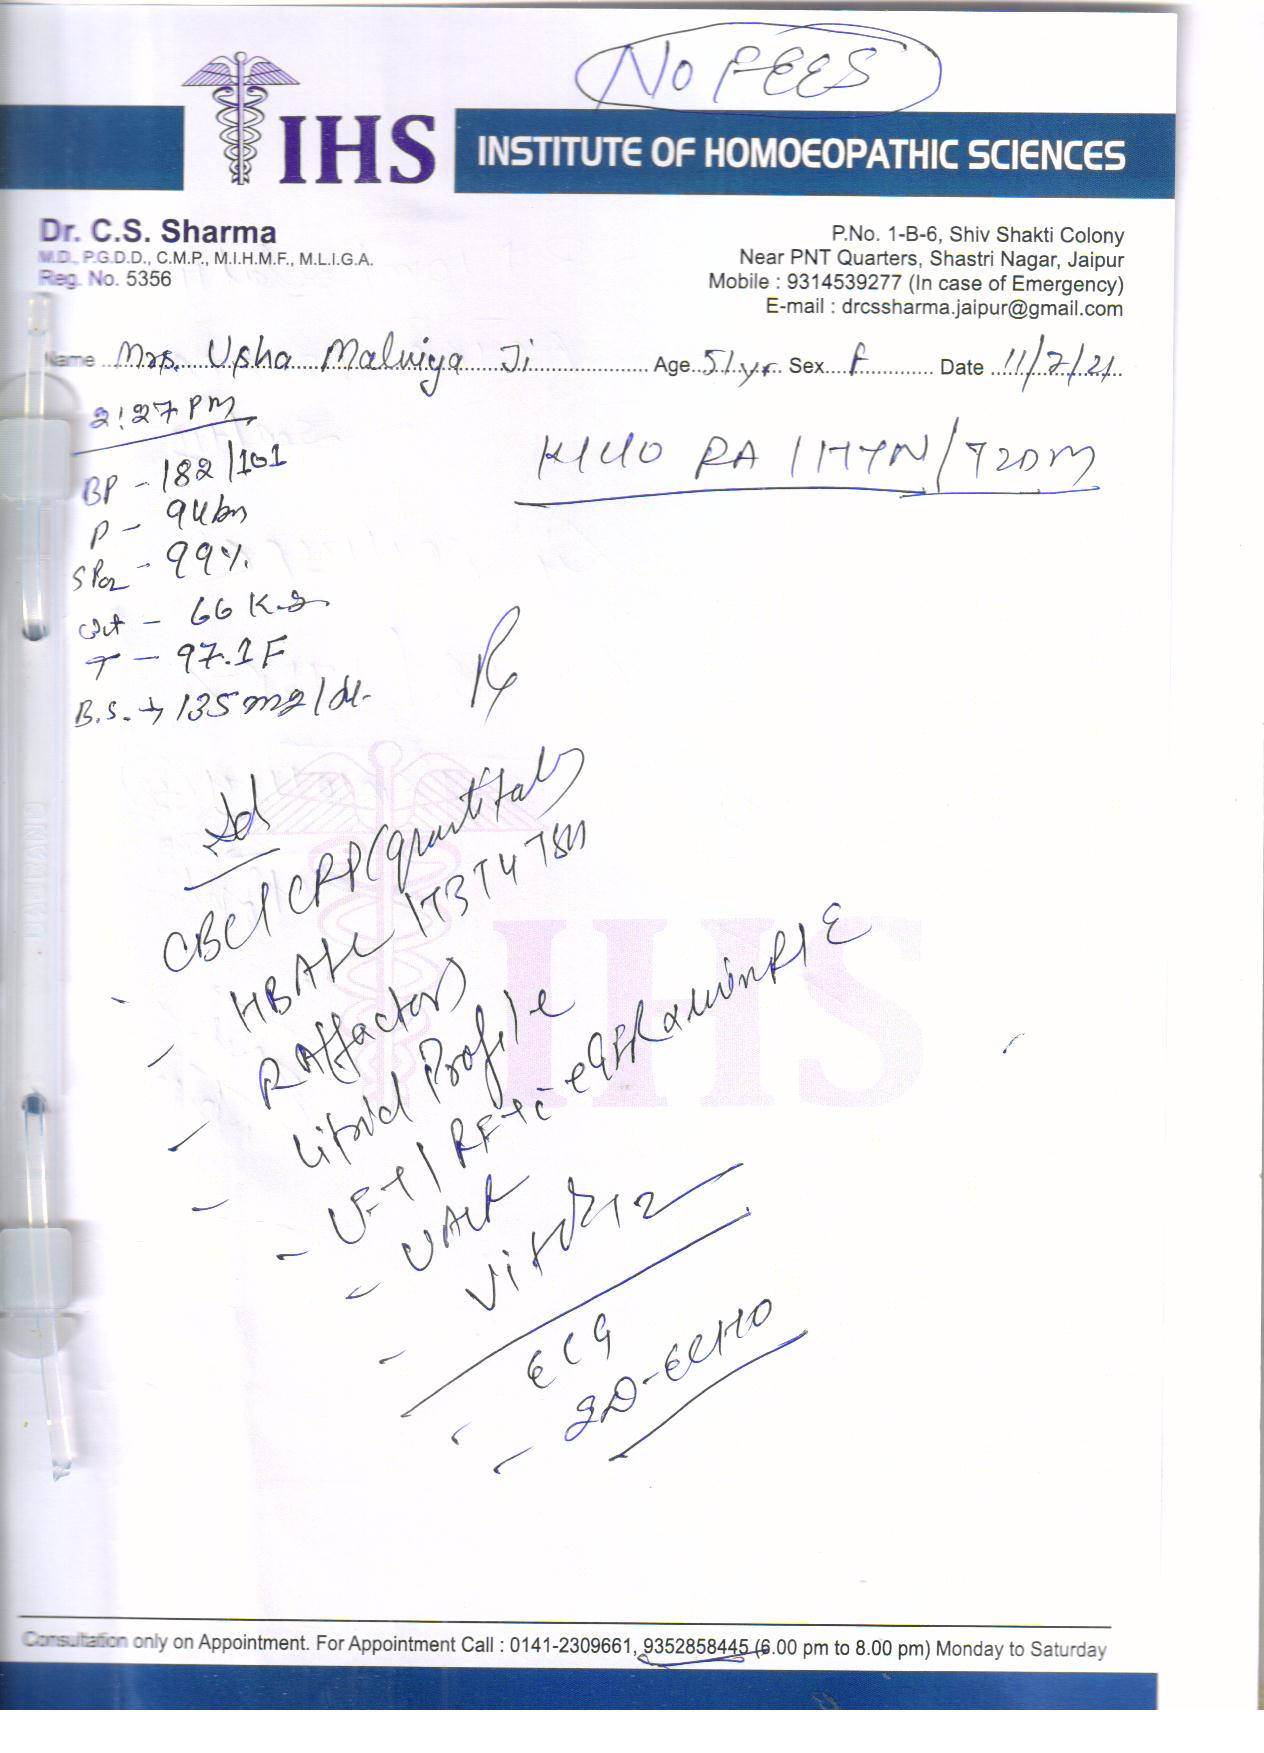 NO FEES
IHS INSTITUTE OF HOMOEOPATHIC SCIENCES
Dr. C.S. Sharma
M.D., P.G.D.D., C.M.P., M.I.H.M.F., M.L.I.G.A.
Reg. No. 5356
P.No. 1-B-6, Shiv Shakti Colony
Near PNT Quarters, Shastri Nagar, Jaipur
Mobile : 9314539277 (In case of Emergency)
E-mail : drcssharma.jaipur@gmail.com
Name Mrs. Usha Malviya Ji Age 51 yr Sex F Date 11/7/21
2:27 PM
K/C/O RA / HTN / T2DM
BP - 182/101
P - 94 bm
SPO2 - 99%
wt - 66 Kg
T - 97.1 F
B.S. → 135 mg/dl
Rx
Ad
CBC / CRP (quantitat)
- HBA1C / T3 T4 TSH
- RA (factor)
- Lipid Profile
- LFT / RFT c̄ eGFR Urine R/E
- VitB12
ECG
- 2D-ECHO
IHS
Consultation only on Appointment. For Appointment Call : 0141-2309661, 9352858445 (6.00 pm to 8.00 pm) Monday to Saturday